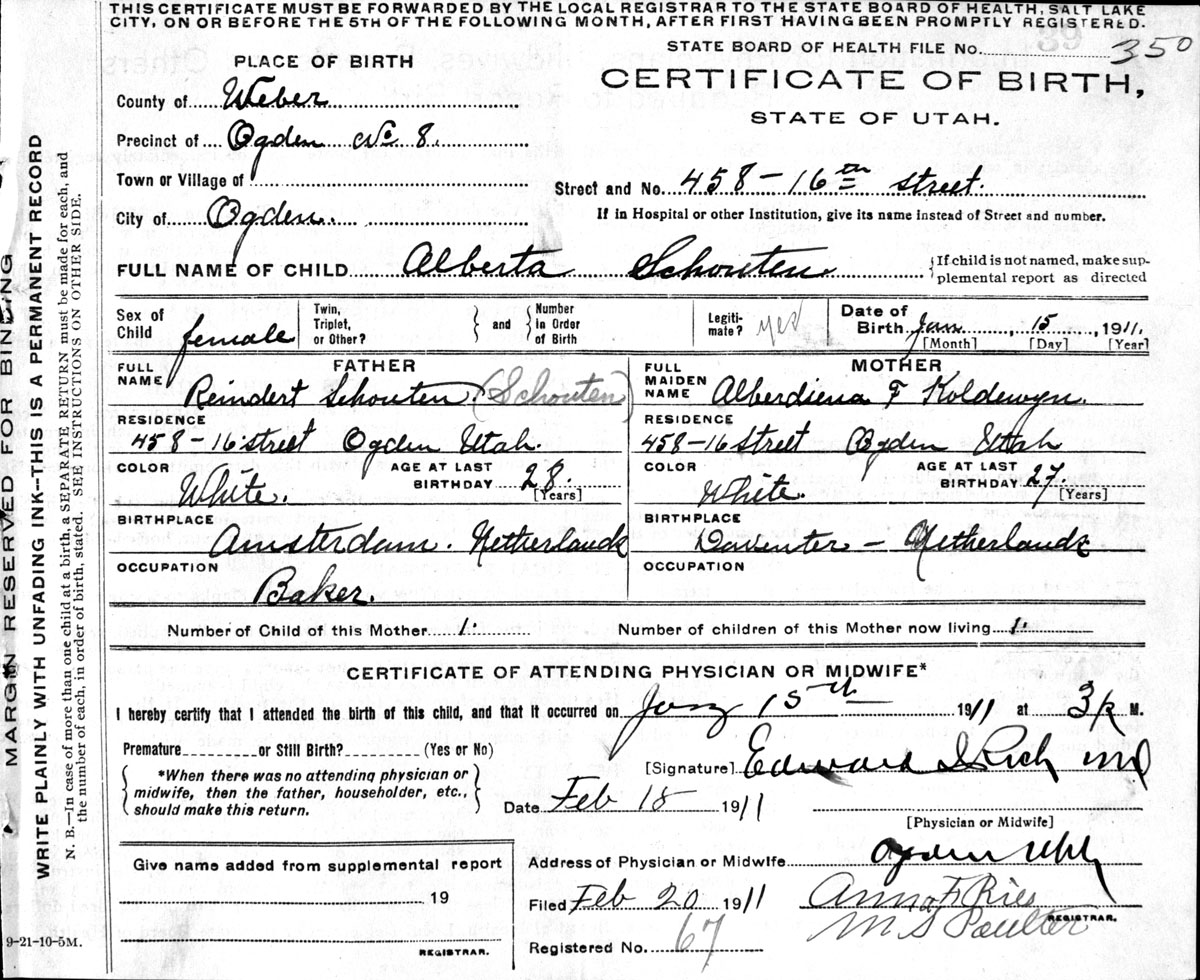 THIS CERTIFICATE MUST BE FORWARDED BY THE LOCAL REGISTRAR TO THE STATE BOARD OF HEALTH, SALT LAKE
CITY, ON OR BEFORE THE 5TH OF THE FOLLOWING MONTH, AFTER FIRST HAVING BEEN PROMPTLY REGISTERED.
STATE BOARD OF HEALTH FILE No. 350
PLACE OF BIRTH
CERTIFICATE OF BIRTH,
STATE OF UTAH.
County of Weber
Precinct of Ogden No 8.
Town or Village of
Street and No. 458-16th street.
City of Ogden.
If in Hospital or other Institution, give its name instead of Street and number.
FULL NAME OF CHILD Alberta Schouten
{If child is not named, make sup-
plemental report as directed
Sex of Child female
Twin, Triplet, or Other? } and { Number in Order of Birth
Legiti-mate? yes
Date of Birth Jan, 15, 1911.
[Month] [Day] [Year]
FATHER
FULL NAME Reindert Schouten. (Schouten)
RESIDENCE
458-16 street Ogden Utah.
COLOR White.
AGE AT LAST BIRTHDAY 28.
[Years]
BIRTHPLACE
Amsterdam. Netherlands
OCCUPATION
Baker.
MOTHER
FULL MAIDEN NAME Alberdiena F Koldewyn.
RESIDENCE
458-16 street Ogden Utah
COLOR White.
AGE AT LAST BIRTHDAY 27.
[Years]
BIRTHPLACE
Daventer - Netherlands
OCCUPATION
Number of Child of this Mother 1.
Number of children of this Mother now living 1.
CERTIFICATE OF ATTENDING PHYSICIAN OR MIDWIFE*
I hereby certify that I attended the birth of this child, and that it occurred on Jany 15th 1911 at M.
Premature or Still Birth? (Yes or No)
{ *When there was no attending physician or
midwife, then the father, householder, etc.,
should make this return. }
[Signature] Edward I Rich MD
Date Feb 18 1911
[Physician or Midwife]
Give name added from supplemental report
19
REGISTRAR.
Address of Physician or Midwife Ogden Utah
Filed Feb 20 1911
Anna F Ries
M S Poulter
REGISTRAR.
Registered No. 67
9-21-10-5M.
MARGIN RESERVED FOR BINDING
WRITE PLAINLY WITH UNFADING INK--THIS IS A PERMANENT RECORD
N. B.--In case of more than one child at a birth, a SEPARATE RETURN must be made for each, and
the number of each, in order of birth, stated. SEE INSTRUCTIONS ON OTHER SIDE.